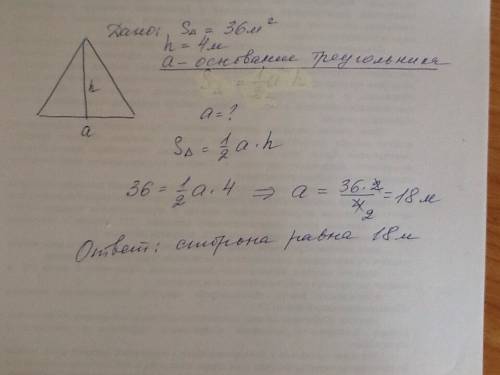 Дано: S△ = 36м²
h = 4м
a - основание треугольника
S△ = 1/2 a · h
h
a
a = ?
S△ = 1/2 a · h
36 = 1/2 a · 4 ⇒ a = 36 · 2 / 4 2 = 18 м
Ответ: сторона равна 18 м